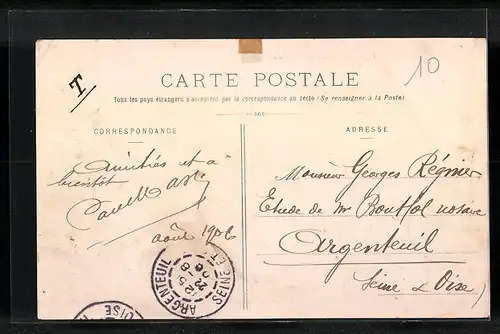 T
10
CARTE POSTALE
Tous les pays étrangers n'acceptent pas la correspondance au recto (Se renseigner à la Poste)
CORRESPONDANCE
ADRESSE
Amitiés et à
bientôt
août 1906
Monsieur Georges Régnier
Etude de Mr notaire
Argenteuil
Seine & Oise
ARGENTEUIL SEINE ET
OISE